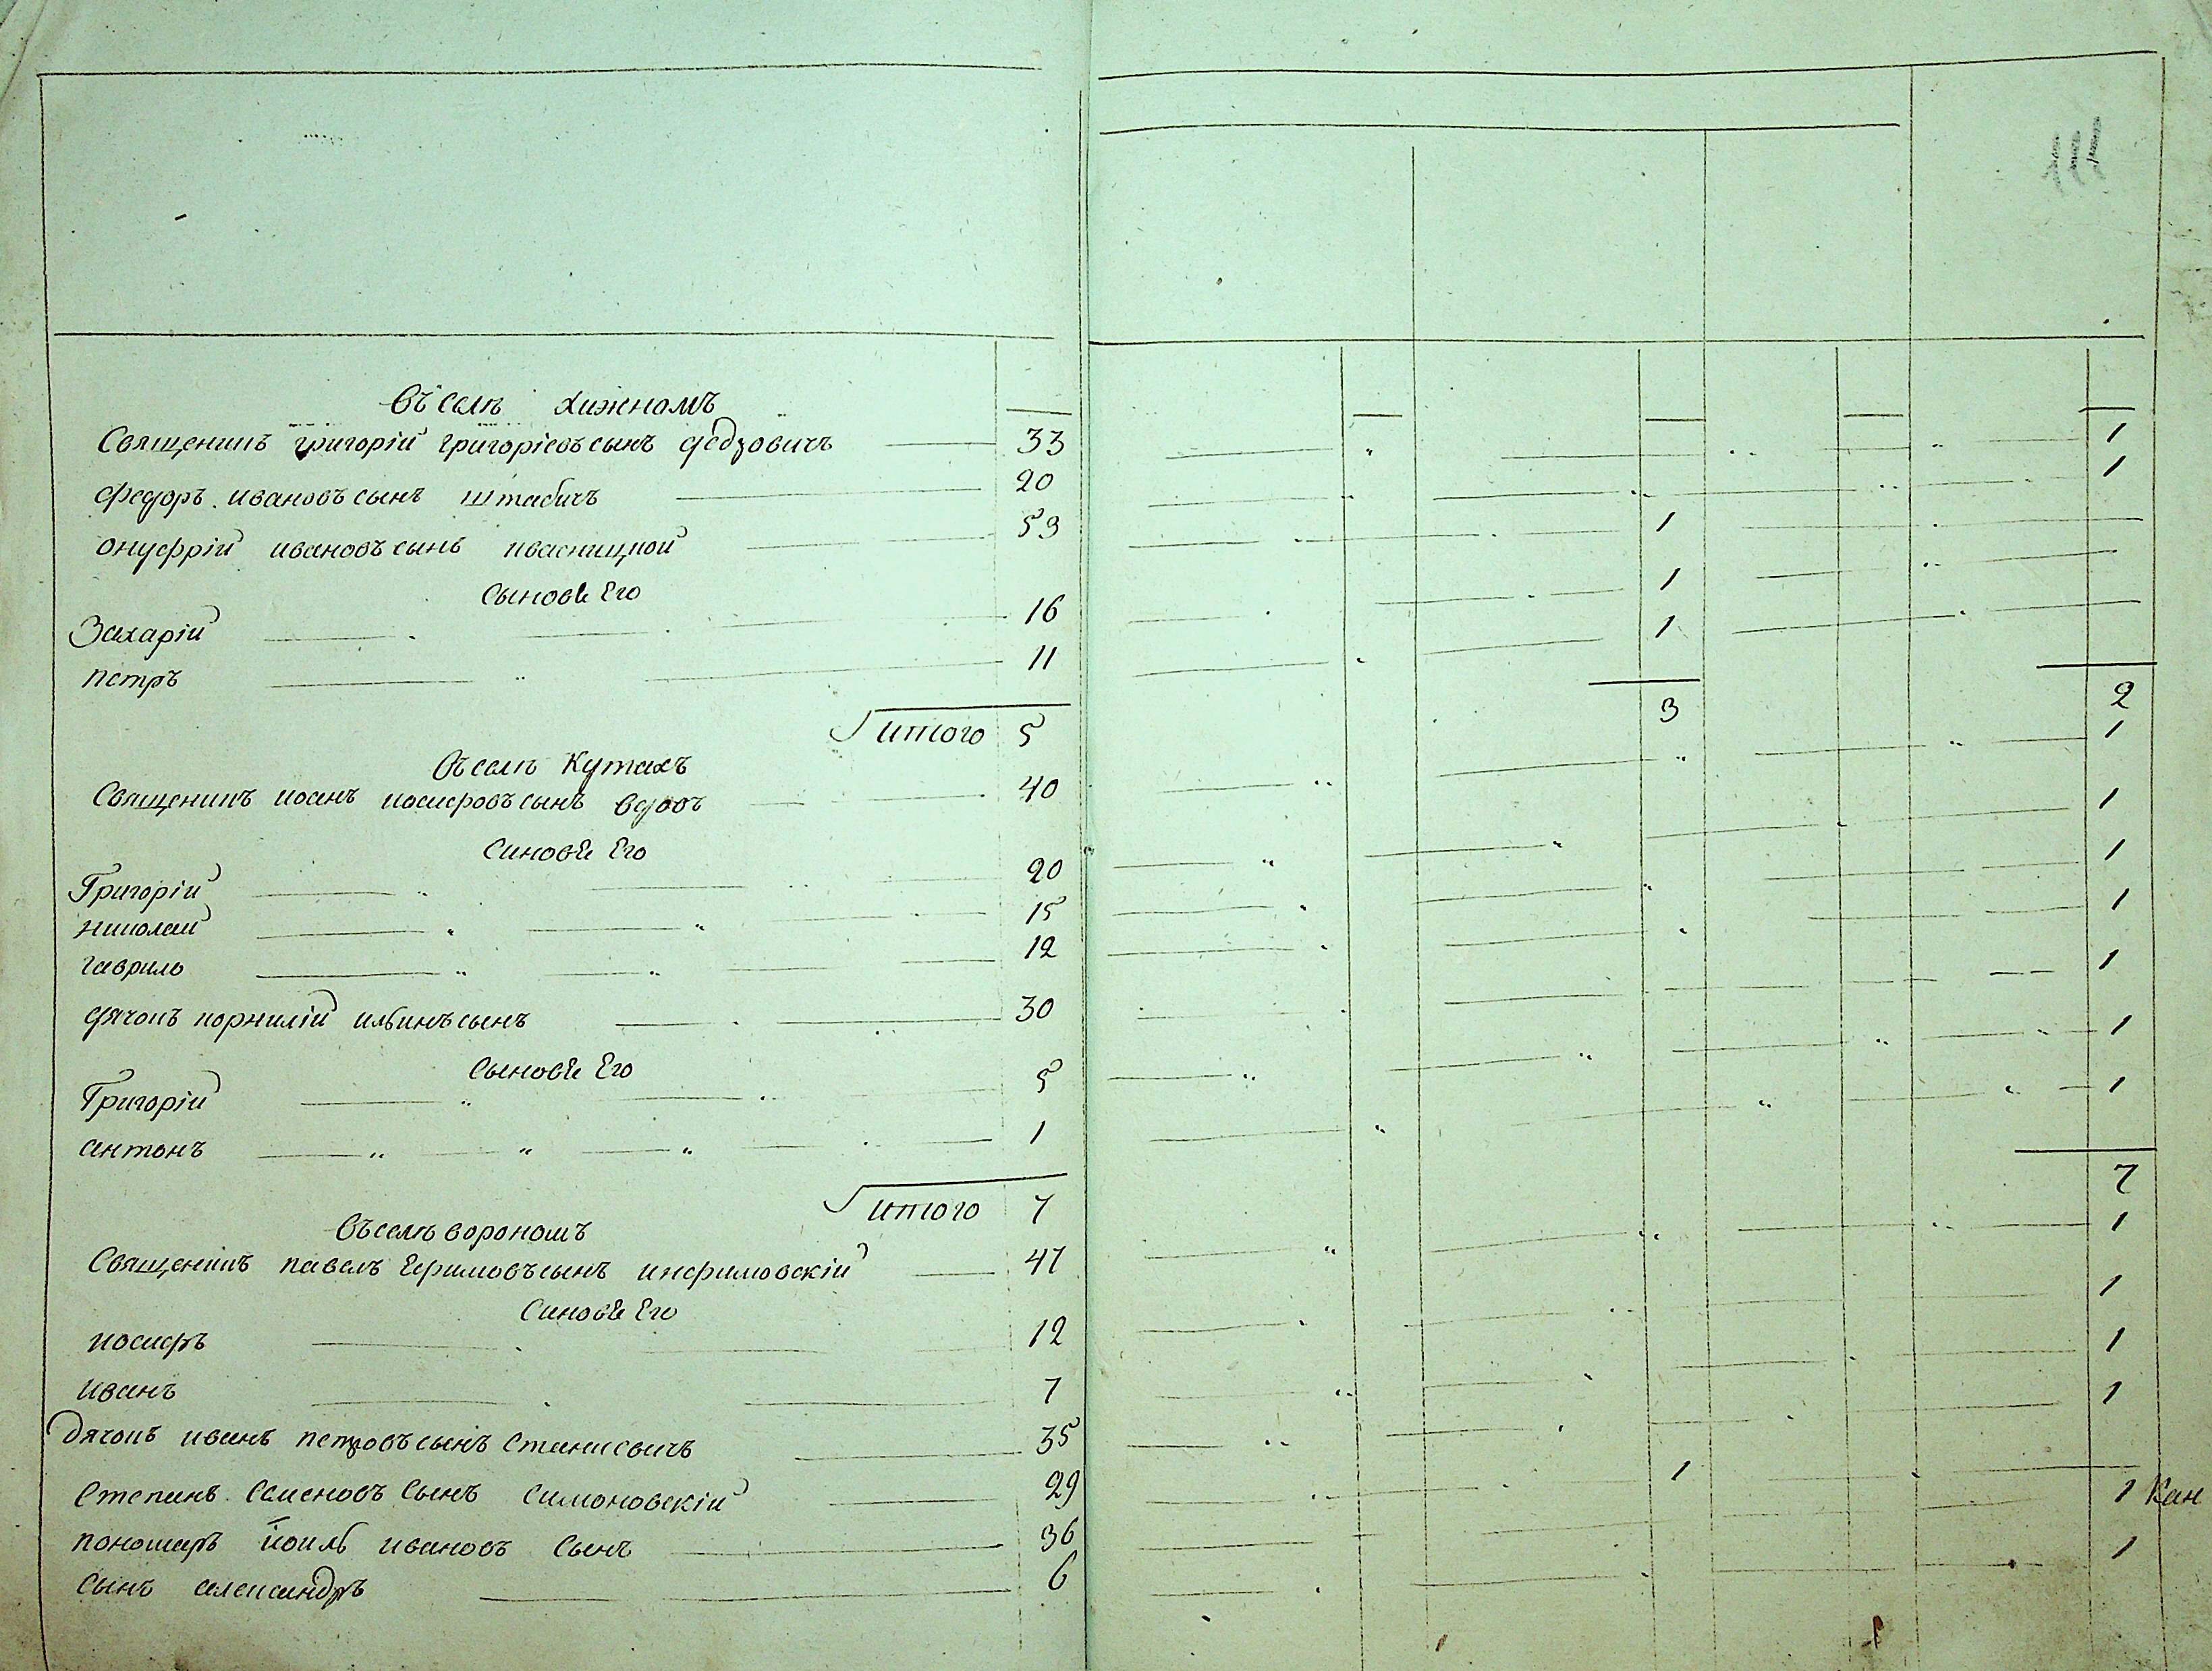 111
Въселѣ Хижномъ
Священикъ григорій григоріевъ сынъ федзовичъ 33 1
Федоръ ивановъ сынъ штабичъ 20 1
Онуфрій ивановъ сынъ квасницкой 53 1
Сынове Его
Захарій 16 1
Петръ 11 1
Итого 5 3 2
Въселѣ Кутахъ
Священикъ иоанъ иосифовъ сынъ вдовъ 40 1
Синове Его
Григорій 20 1
николай 15 1
гавриль 12 1
дячокъ корнилій ильинъ сынъ 30 1
Сынове Его
Григорій 5 1
антонъ 1 1
Итого 7 7
Въселѣ ворономъ
Священікъ павелъ Ефимовъ сынъ 47 1
Синове Его
иосифъ 12 1
иванъ 7 1
Дячокъ иванъ петровъ сынъ Станисвичъ 35 1
Степанъ Семеновъ Сынъ Симоновскій 29 1
пономаръ иоиль ивановъ Сынъ 36 1 Кан
Сынъ александръ 6 1